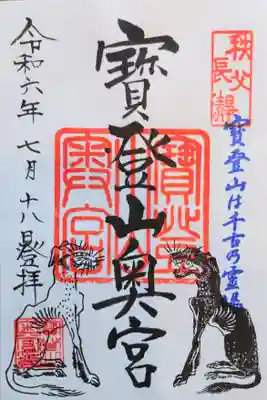 秩父
長瀞
寶登山は千古の霊場
寶登山奥宮
令和六年 七月 十八日登拝